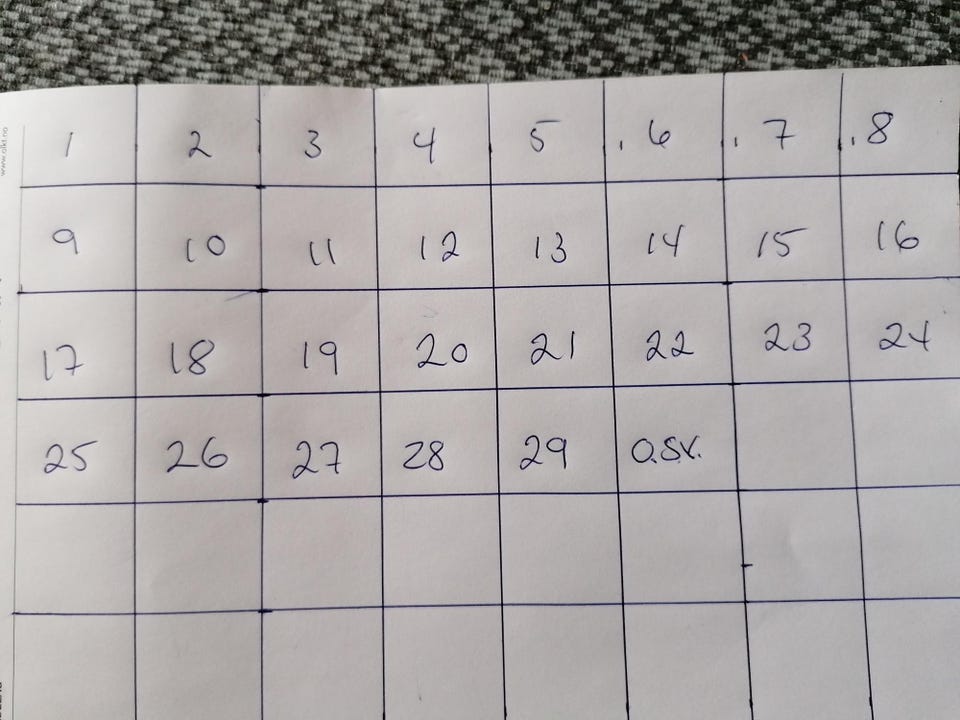 1 2 3 4 5 . 6 . 7 . 8
9 10 11 12 13 14 15 16
17 18 19 20 21 22 23 24
25 26 27 28 29 o.s.v.